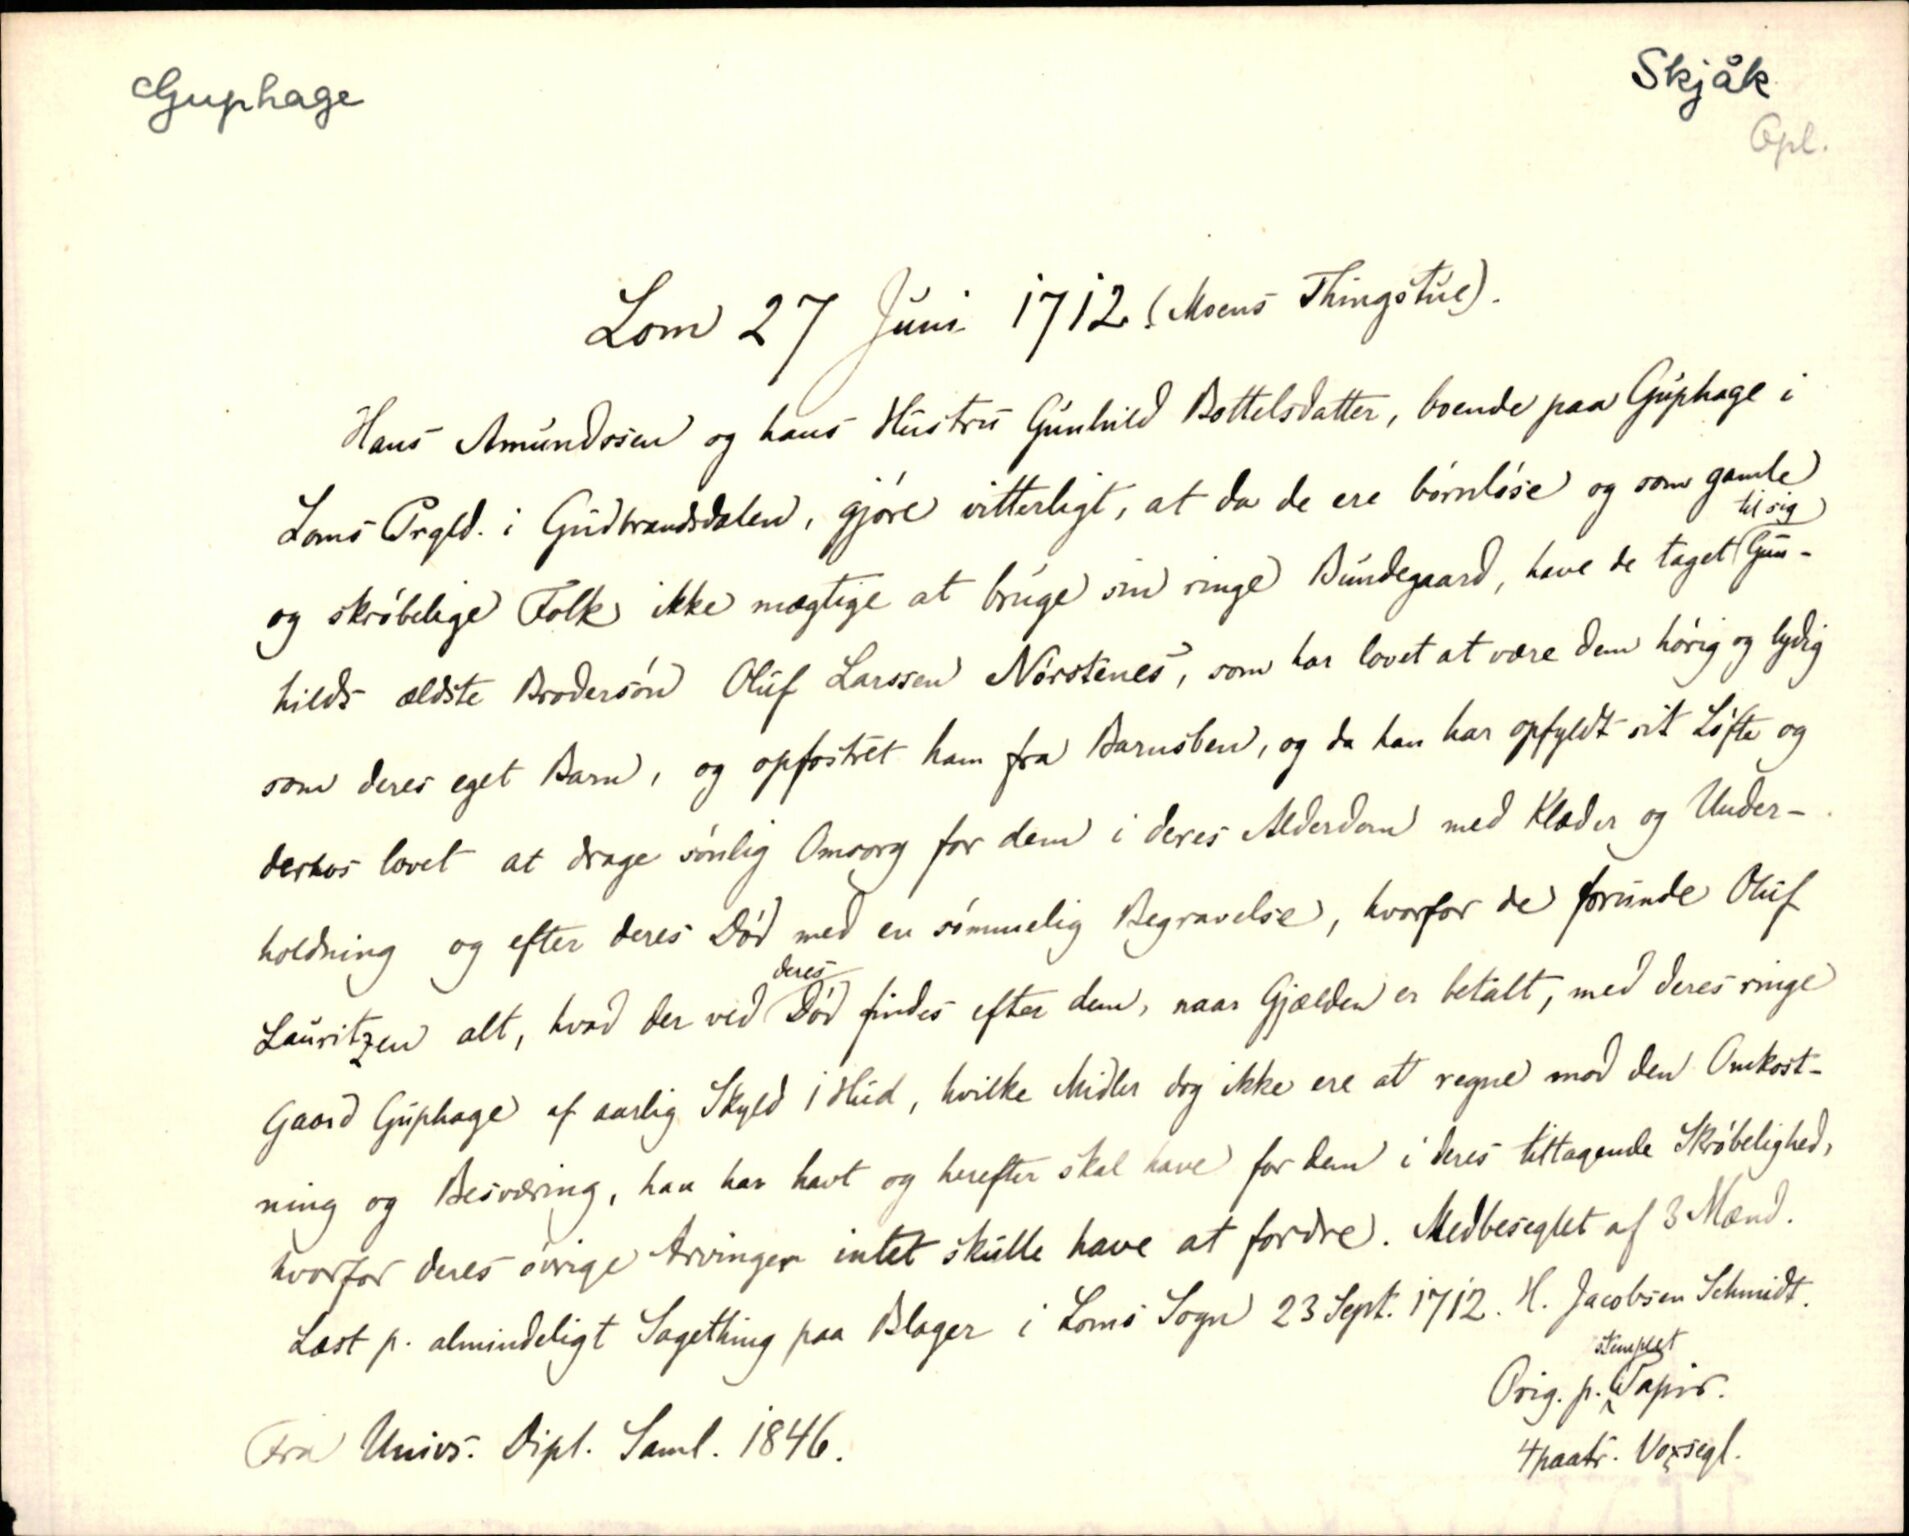 Guphage
Skjåk
Opl.
Lom 27 Juni 1712 (Moens Thingstue).
Hans Amundssen og hans Hustru Gunhild Bottelsdatter, boende paa Guphage i
Loms Prgld. i Gudbrandsdalen, gjøre vitterligt, at da de ere børnløse og som gamle
og skrøbelige Folk ikke mægtige at bruge sin ringe Bundegaard, have de taget til sig Gun-
hilds ældste Brodersøn Oluf Larssen Nørstenes, som har lovet at være dem hørig og lydig
som deres eget Barn, og opfostret ham fra Barnsben, og da han har opfyldt sit Løfte og
derhos lovet at drage sønlig Omsorg for dem i deres Alderdom med Klæder og Under-
holdning og efter deres Død med en sømmelig Begravelse, hvorfor de forunde Oluf
Lauritzen alt, hvad der ved deres Død findes efter dem, naar Gjælden er betalt, med deres ringe
Gaard Guphage af aarlig Skyld 1 Hud, hvilke Midler dog ikke ere at regne mod den Omkost-
ning og Besværing, han har havt og herefter skal have for dem i deres tiltagende Skrøbelighed,
hvorfor deres øvrige Arvinger intet skulle have at fordre. Medbeseglet af 3 Mænd.
Læst p. almindeligt Sagething paa Blager i Loms Sogn 23 Sept. 1712. H. Jacobsen Schmidt.
Orig. p. stemplet Papir.
4 paatr. Voxsegl.
Fra Univs. Dipl. Saml. 1846.